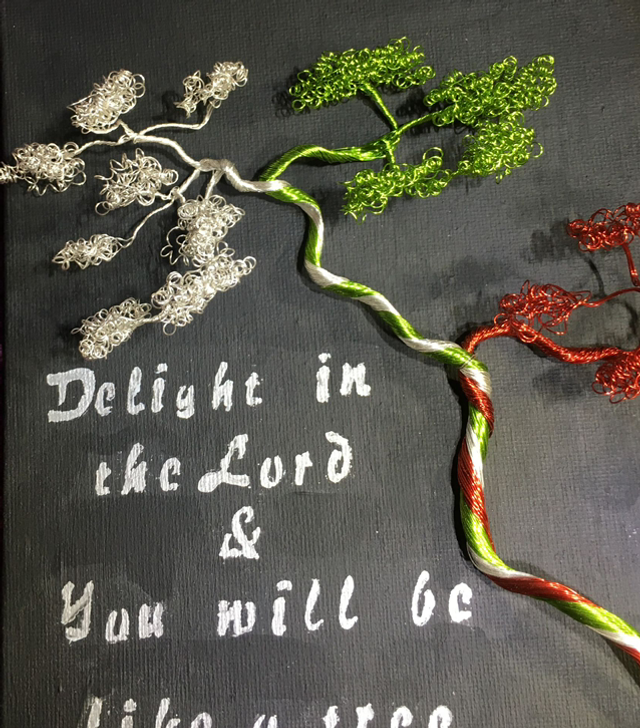 Delight in
the Lord
&
You will be
like a tree